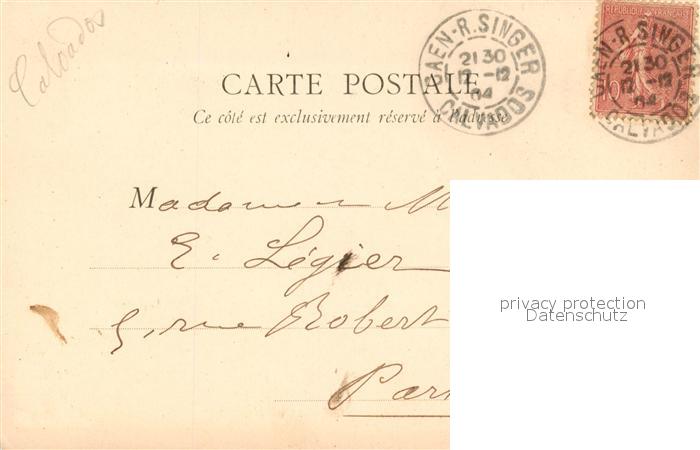 Calvados
CAEN-R. SINGER
2130
12-12
04
CALVADOS
REPUBLIQUE FRANÇAISE
10
CAEN-R. SINGER
2130
12-12
04
CALVADOS
CARTE POSTALE
Ce côté est exclusivement réservé à l'adresse
Madame M
E. Légier
5, rue Robert
Par
privacy protection
Datenschutz